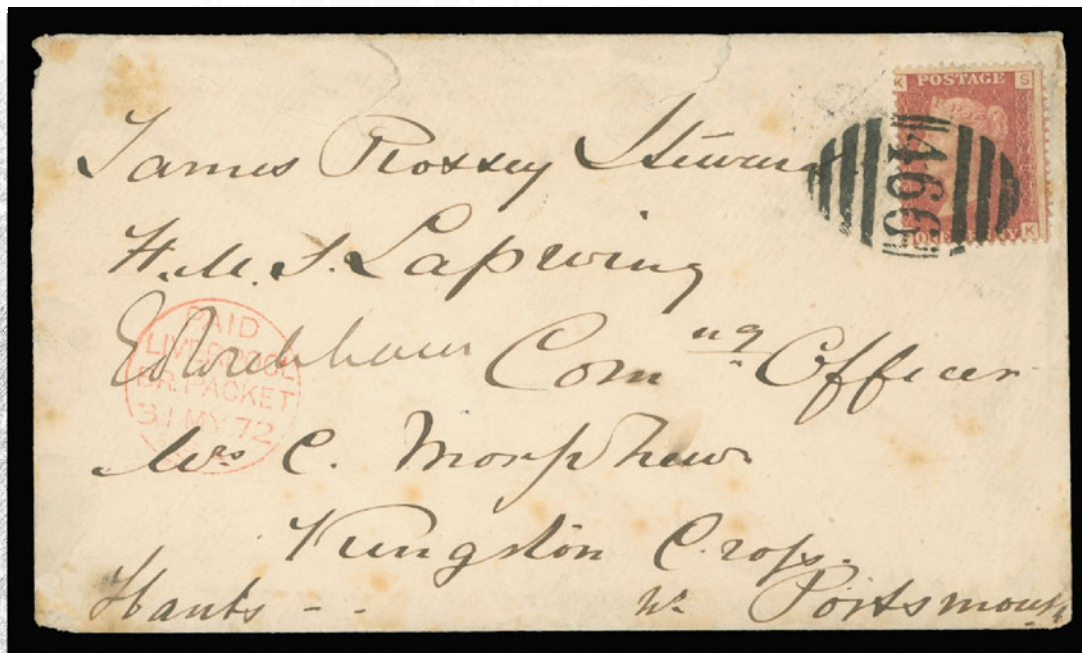 K POSTAGE S
ONE PENNY K
466
James Rossey Steward
H.M.S. Lapwing
Comng Officer
PAID
LIVERPOOL
BR. PACKET
31 MY 72
Mrs C. Morphew
Kungston Cross.
Hants - - Nr Portsmouth